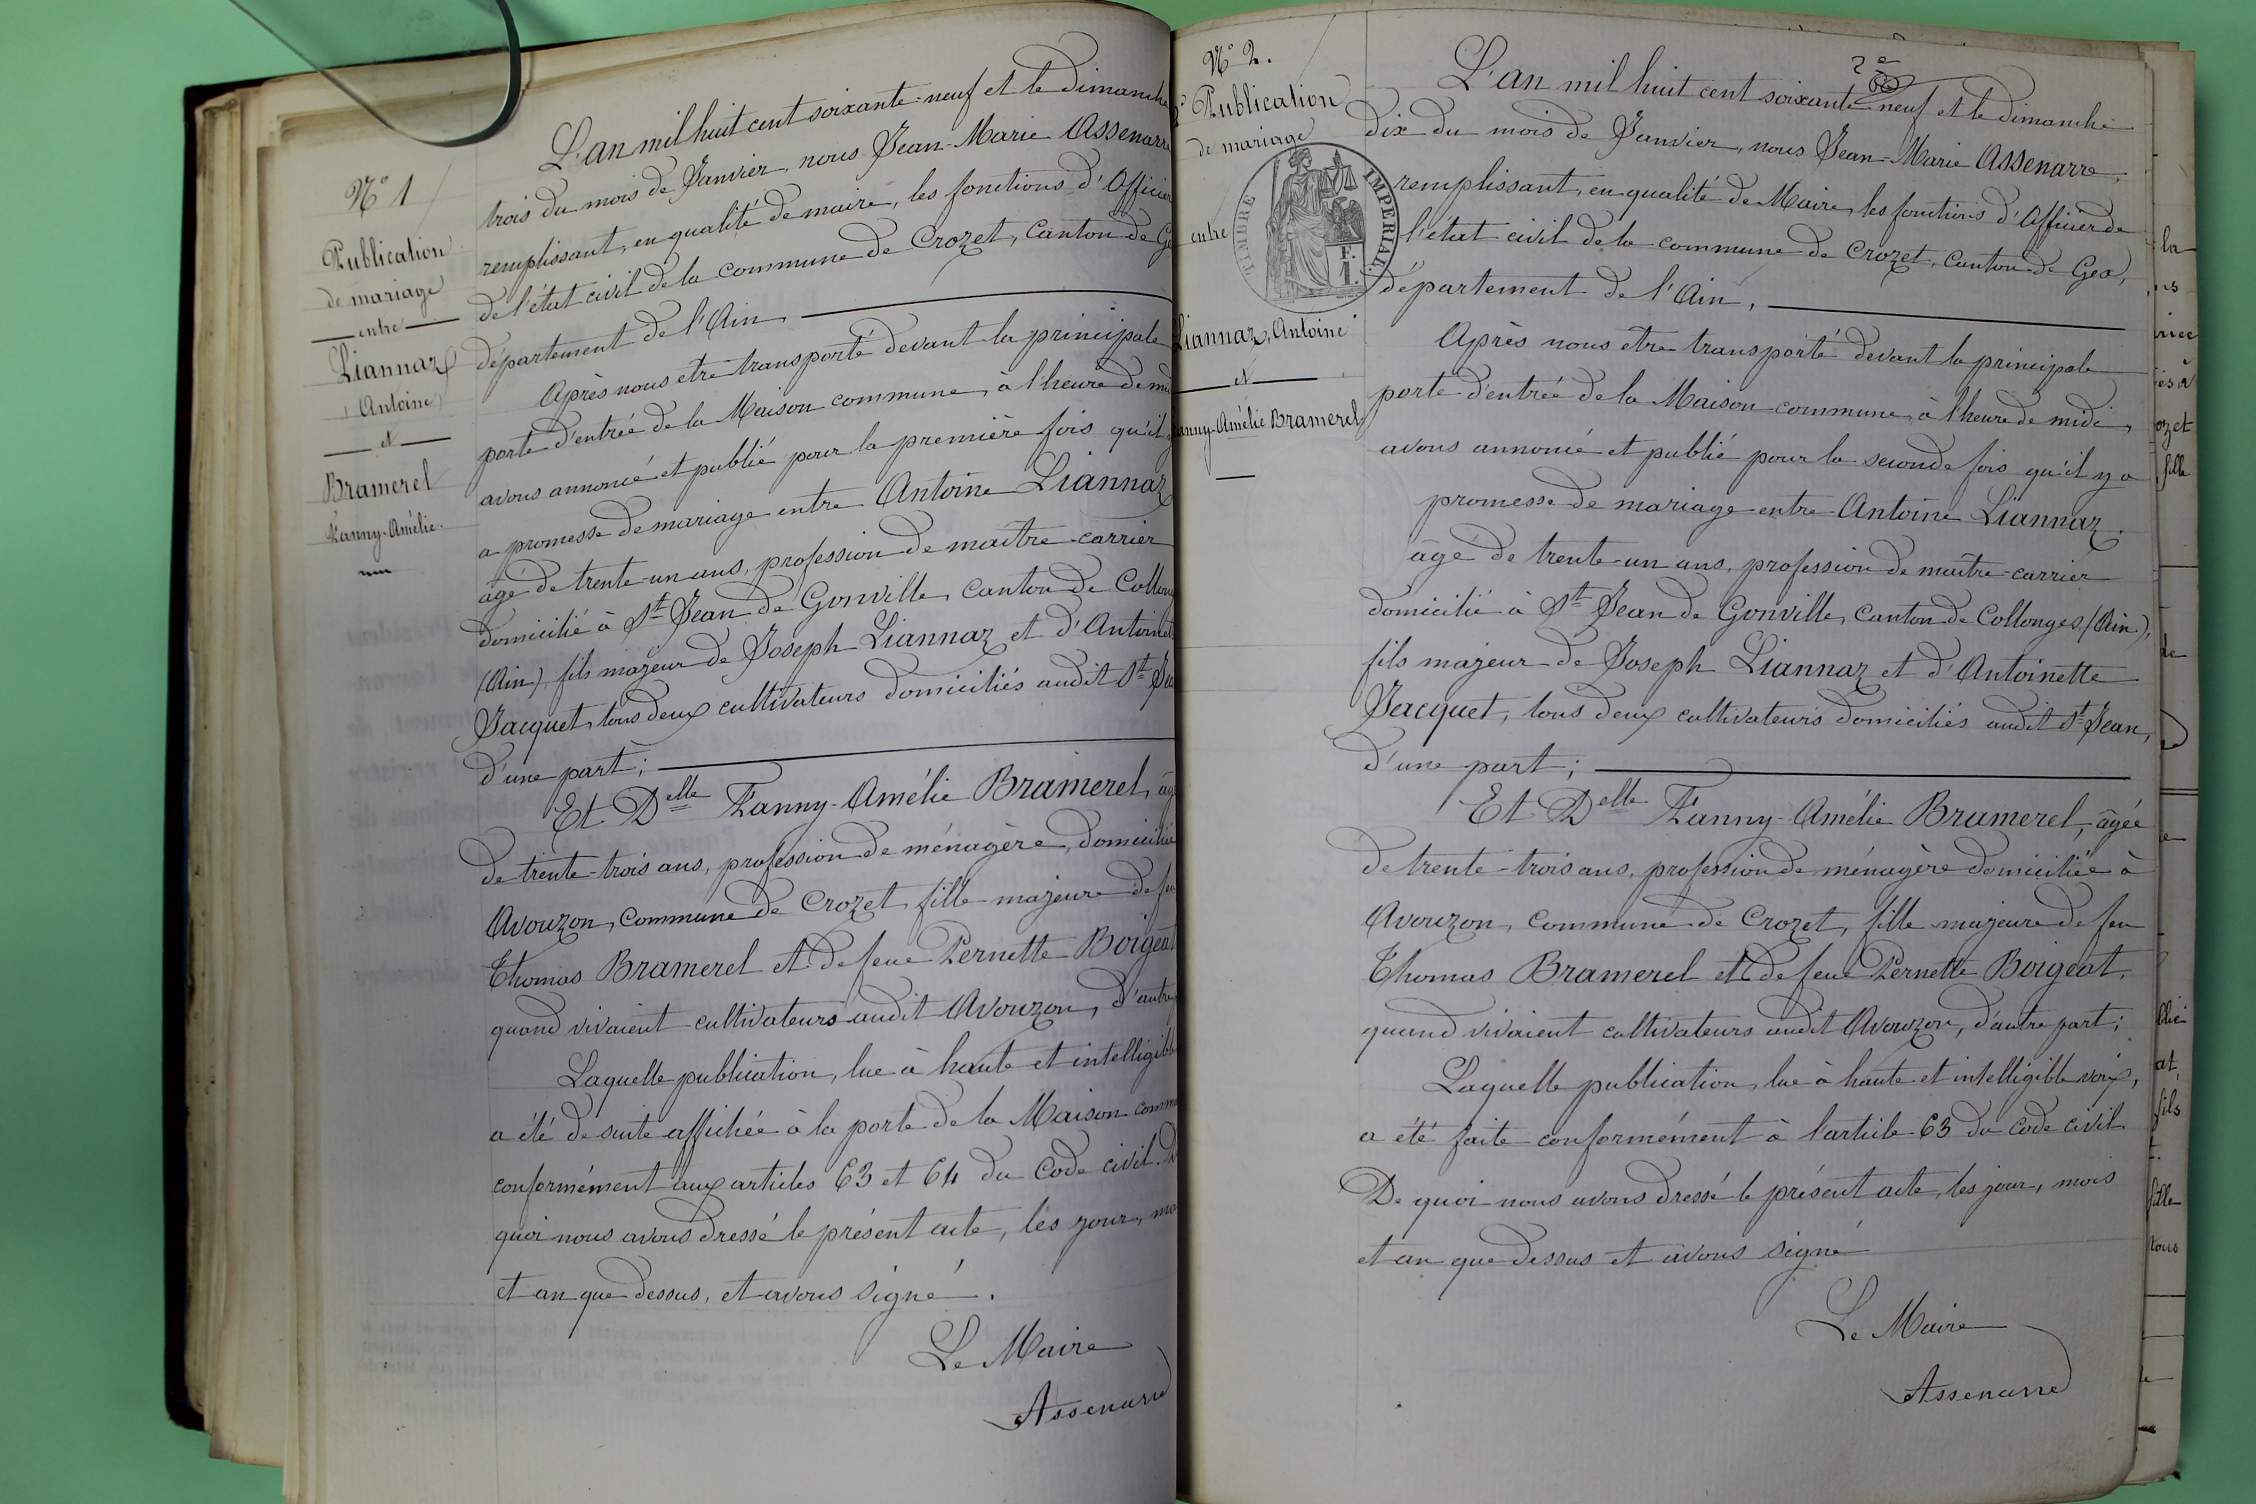 N° 1
Publication
de mariage
entre
Liannaz
Antoine
et
Bramerel
Fanny-Amélie.
L'an mil huit cent soixante-neuf et le dimanche
trois du mois de Janvier, nous Jean-Marie Assenarre
remplissant, en qualité de maire, les fonctions d'Officier
de l'état civil de la commune de Crozet, canton de Ge
département de l'Ain,
Après nous être transporté devant la principale
porte d'entrée de la Maison commune, à l'heure de mi
avons annoncé et publié pour la première fois qu'il y
a promesse de mariage entre Antoine Liannaz
âgé de trente-un ans, profession de maître-carrier
domicilié à St Jean de Gonville, canton de Collon
(Ain), fils majeur de Joseph Liannaz et d'Antoinet
Jacquet, tous deux cultivateurs domiciliés audit St Jea
d'une part;
Et Delle Fanny-Amélie Bramerel, âg
de trente-trois ans, profession de ménagère, domiciliée
Avouzon, commune de Crozet, fille majeure de feu
Thomas Bramerel et de feue Pernette Boigeat
quand vivaient cultivateurs audit Avouzon, d'autre
Laquelle publication, lue à haute et intelligible
a été de suite affichée à la porte de la Maison comm
conformément aux articles 63 et 64 du Code civil. D
quoi nous avons dressé le présent acte, les jour, mo
et an que dessus, et avons signé.
Le Maire
Assenarre
N° 2.
2e Publication
de mariage
entre
TIMBRE IMPERIAL
F.
1.
Liannaz, Antoine
et
anny-Amélie Bramerel
2e
L'an mil huit cent soixante neuf et le dimanche
dix du mois de Janvier, nous Jean-Marie Assenarre,
remplissant, en qualité de Maire, les fonctions d'Officier de
l'état civil de la commune de Crozet, canton de Gex,
département de l'Ain,
Après nous être transporté devant la principale
porte d'entrée de la Maison commune, à l'heure de midi,
avons annoncé et publié pour la seconde fois qu'il y a
promesse de mariage entre Antoine Liannaz.
âgé de trente-un ans, profession de maître-carrier
domicilié à St Jean de Gonville, canton de Collonges (Ain),
fils majeur de Joseph Liannaz et d'Antoinette
Jacquet, tous deux cultivateurs domiciliés audit St Jean,
d'une part;
Et Delle Fanny-Amélie Bramerel, âgée
de trente-trois ans, profession de ménagère domiciliée à
Avouzon, commune de Crozet, fille majeure de feu
Thomas Bramerel et de feue Pernette Boigeat,
quand vivaient cultivateurs audit Avouzon, d'autre part;
Laquelle publication, lue à haute et intelligible voix,
a été faite conformément à l'article 63 du Code civil.
De quoi nous avons dressé le présent acte, les jour, mois
et an que dessus et avons signé
Le Maire
Assenarre
la
ozet
fille
de
at,
fils
fille
tous